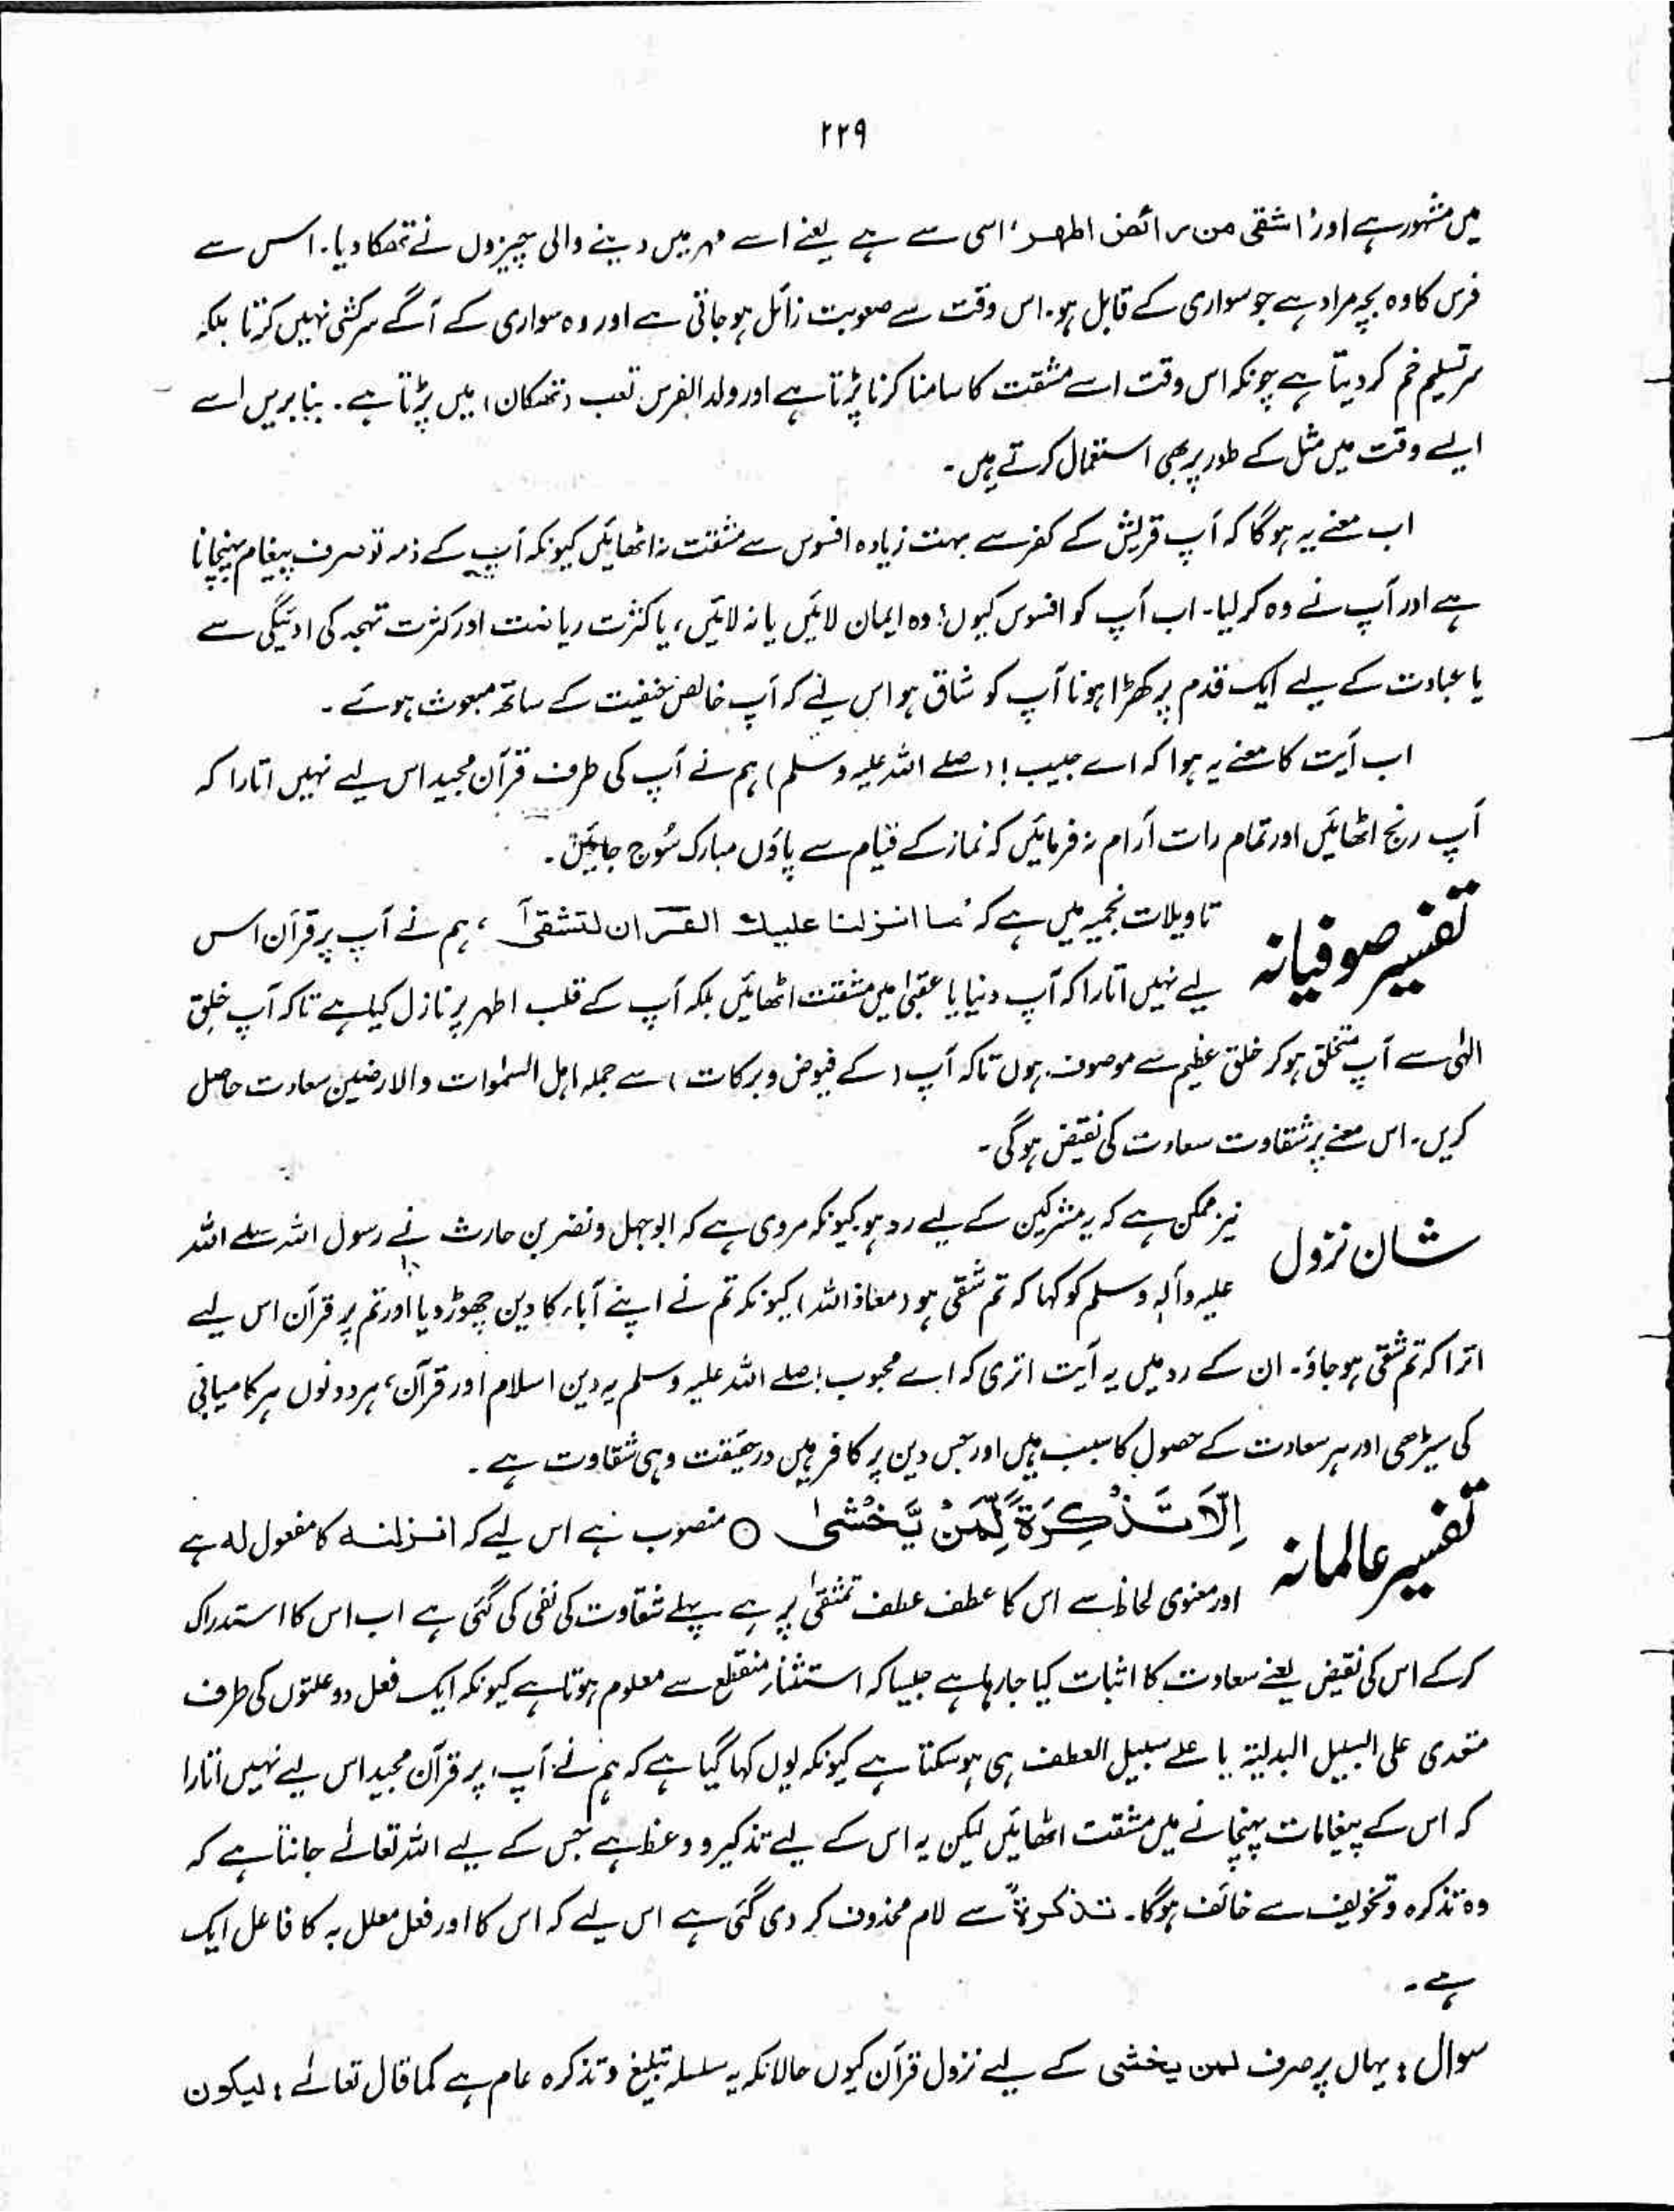 ۲۲۹
میں مشہور ہے اور 'اشقی من رائض المهر' اسی سے ہے یعنے اسے مہر میں دینے والی چیزوں نے تھکا دیا۔ اس سے
فرس کا وہ بچہ مراد ہے جو سواری کے قابل ہو۔ اس وقت سے صعوبت زائل ہو جاتی ہے اور وہ سواری کے آگے سرکشی نہیں کرتا بلکہ
سر تسلیم خم کر دیتا ہے چونکہ اس وقت اسے مشقت کا سامنا کرنا پڑتا ہے اور ولد الفرس تعب (تھکان) میں پڑتا ہے۔ بنابریں اسے
ایسے وقت میں مثل کے طور پر بھی استعمال کرتے ہیں۔
اب معنے یہ ہوگا کہ آپ قریش کے کفر سے بہت زیادہ افسوس سے مشقت نہ اٹھائیں کیونکہ آپ کے ذمہ تو صرف پیغام پہنچانا
ہے اور آپ نے وہ کر لیا۔ اب آپ کو افسوس کیوں؛ وہ ایمان لائیں یا نہ لائیں، یا کثرت ریاضت اور کثرت تہجد کی ادئیگی سے
یا عبادت کے لیے ایک قدم پر کھڑا ہونا آپ کو شاق ہو اس لیے کہ آپ خالص حنفیت کے ساتھ مبعوث ہوئے۔
اب آیت کا معنے یہ ہوا کہ اے حبیب! (صلے اللہ علیہ وسلم) ہم نے آپ کی طرف قرآن مجید اس لیے نہیں اتارا کہ
آپ رنج اٹھائیں اور تمام رات آرام نہ فرمائیں کہ نماز کے قیام سے پاؤں مبارک سُوج جائیں۔
تفسیر صوفیانہ تاویلات نجمیہ میں ہے کہ 'ما انزلنا علیك القرآن لتشقیٰ'، ہم نے آپ پر قرآن اس
لیے نہیں اتارا کہ آپ دنیا یا عقبیٰ میں مشقت اٹھائیں بلکہ آپ کے قلب اطہر پر نازل کیا ہے تاکہ آپ خلق
الٰہی سے آپ متخلق ہو کر خلق عظیم سے موصوف ہوں تاکہ آپ (کے فیوض و برکات) سے جملہ اہل السمٰوات والارضین سعادت حاصل
کریں۔ اس معنے پر شقاوت سعادت کی نقیض ہوگی۔
شان نزول نیز ممکن ہے کہ یہ مشرکین کے لیے رد ہو کیونکہ مروی ہے کہ ابوجہل و نضر بن حارث نے رسول اللہ صلے اللہ
علیہ وآلہٖ وسلم کو کہا کہ تم شقی ہو (معاذ اللہ) کیونکہ تم نے اپنے آباء کا دین چھوڑ دیا اور تم پر قرآن اس لیے
اترا کہ تم شقی ہو جاؤ۔ ان کے رد میں یہ آیت اتری کہ اے محبوب! صلے اللہ علیہ وسلم یہ دین اسلام اور قرآن، ہر دونوں ہر کامیابی
کی سیڑھی اور ہر سعادت کے حصول کا سبب ہیں اور جس دین پر کافر ہیں درحقیقت وہی شقاوت ہے۔
تفسیر عالمانہ اِلَّا تَذْکِرَۃً لِّمَنْ یَّخْشٰی ○ منصوب ہے اس لیے کہ انزلنہ کا مفعول لہ ہے
اور معنوی لحاظ سے اس کا عطف عطف تشقیٰ پر ہے پہلے شقاوت کی نفی کی گئی ہے اب اس کا استدراک
کر کے اس کی نقیض یعنے سعادت کا اثبات کیا جا رہا ہے جیسا کہ استثناء منقطع سے معلوم ہوتا ہے کیونکہ ایک فعل دو علتوں کی طرف
متعدی علی السبیل البدلیۃ یا علے سبیل العطف ہی ہو سکتا ہے کیونکہ یوں کہا گیا ہے کہ ہم نے آپ پر قرآن مجید اس لیے نہیں اتارا
کہ اس کے پیغامات پہنچانے میں مشقت اٹھائیں لیکن یہ اس کے لیے تذکیر و وعظ ہے جس کے لیے اللہ تعالےٰ جانتا ہے کہ
وہ تذکرہ و تخویف سے خائف ہوگا۔ تذکرۃً سے لام محذوف کر دی گئی ہے اس لیے کہ اس کا اور فعل معلل بہ کا فاعل ایک
ہے۔
سوال: یہاں پر صرف لمن یخشی کے لیے نزول قرآن کیوں حالانکہ یہ سلسلہ تبلیغ و تذکرہ عام ہے کما قال تعالےٰ: لیکون